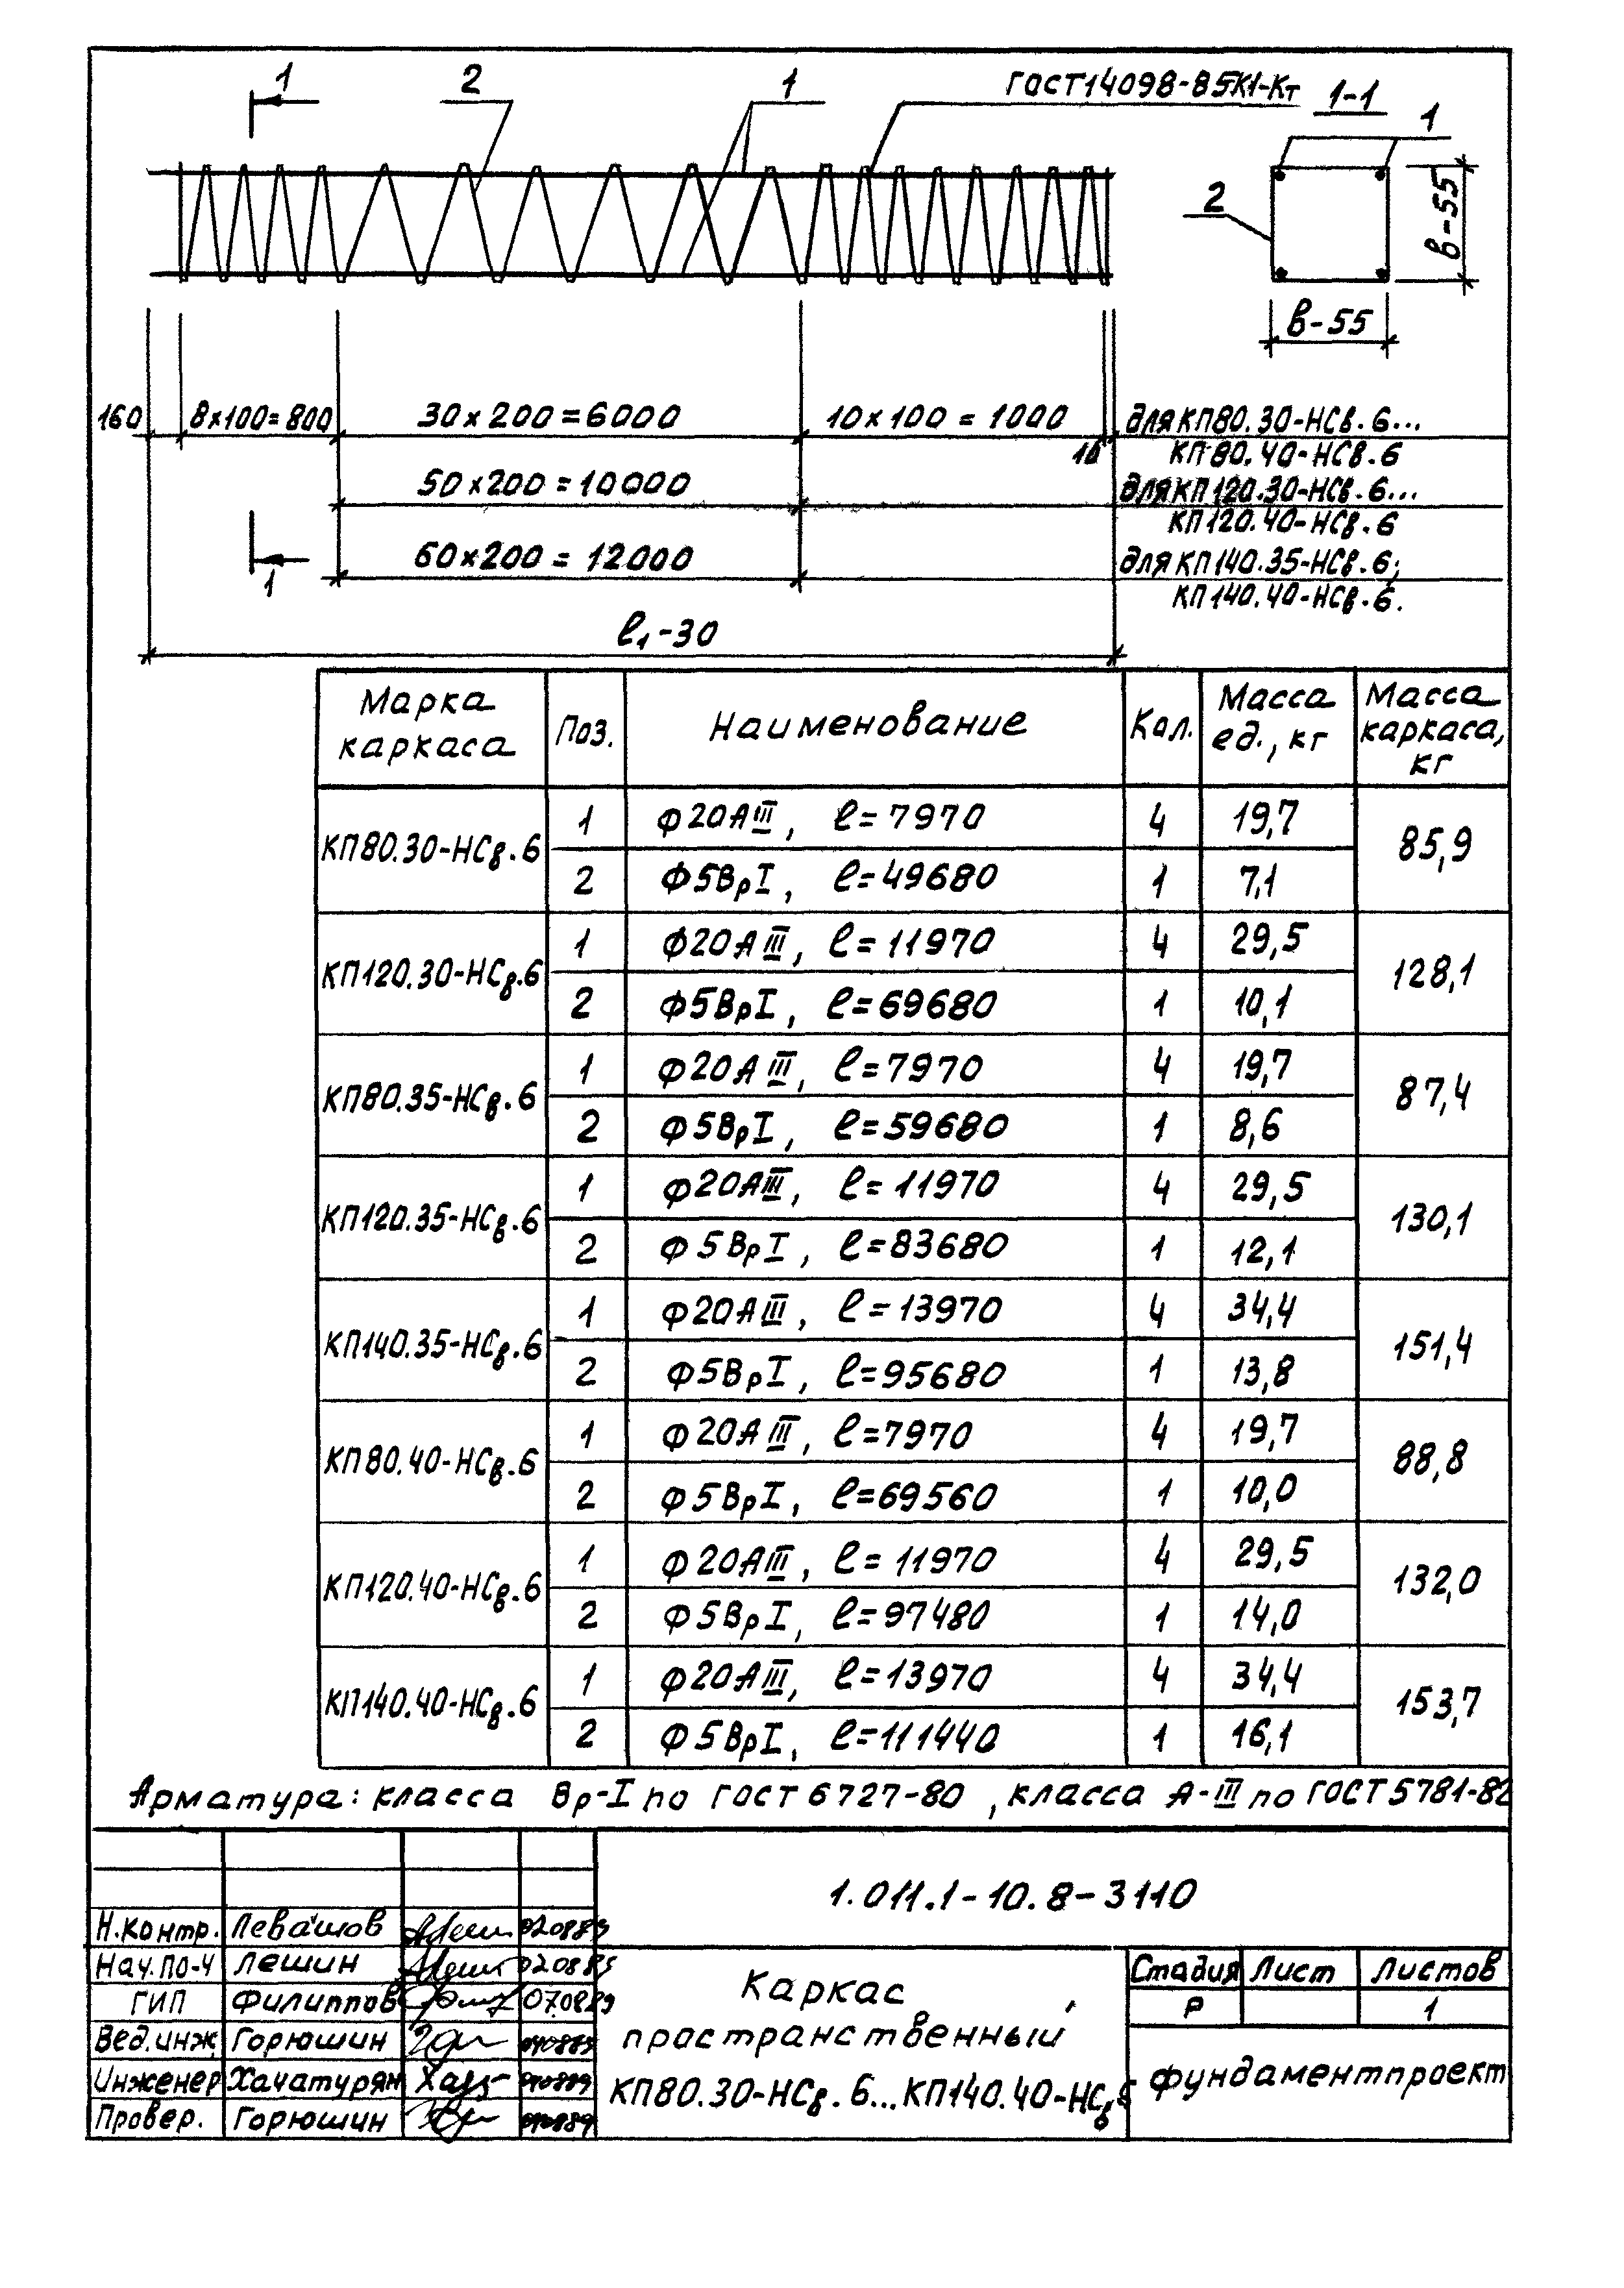 1 2 1 ГОСТ14098-85К1-Кт 1-1
1
2
в-55
в-55
160 8х100=800 30х200=6000 10х100=1000 для КП80.30-НСв.6...
10 КП80.40-НСв.6
50х200=10000 для КП120.30-НСв.6...
КП120.40-НСв.6
60х200=12000 для КП140.35-НСв.6;
1 КП140.40-НСв.6.
ℓ1-30
Марка каркаса Поз. Наименование Кол. Масса ед., кг Масса каркаса, кг
КП80.30-НСв.6 1 Ф20АIII, ℓ=7970 4 19,7 85,9
2 Ф5ВрI, ℓ=49680 1 7,1
КП120.30-НСв.6 1 Ф20АIII, ℓ=11970 4 29,5 128,1
2 Ф5ВрI, ℓ=69680 1 10,1
КП80.35-НСв.6 1 Ф20АIII, ℓ=7970 4 19,7 87,4
2 Ф5ВрI, ℓ=59680 1 8,6
КП120.35-НСв.6 1 Ф20АIII, ℓ=11970 4 29,5 130,1
2 Ф5ВрI, ℓ=83680 1 12,1
КП140.35-НСв.6 1 Ф20АIII, ℓ=13970 4 34,4 151,4
2 Ф5ВрI, ℓ=95680 1 13,8
КП80.40-НСв.6 1 Ф20АIII, ℓ=7970 4 19,7 88,8
2 Ф5ВрI, ℓ=69560 1 10,0
КП120.40-НСв.6 1 Ф20АIII, ℓ=11970 4 29,5 132,0
2 Ф5ВрI, ℓ=97480 1 14,0
КП140.40-НСв.6 1 Ф20АIII, ℓ=13970 4 34,4 153,7
2 Ф5ВрI, ℓ=111440 1 16,1
Арматура: класса Вр-I по ГОСТ 6727-80, класса А-III по ГОСТ 5781-82
1.011.1-10.8-3110
Н.контр. Левашов
Нач.ПО-4 Лешин
ГИП Филиппов 070889
Вед.инж Горюшин
Инженер Хачатурян
Провер. Горюшин
Каркас
пространственный
КП80.30-НСв.6...КП140.40-НСв.6
Стадия Лист Листов
Р 1
фундаментпроект